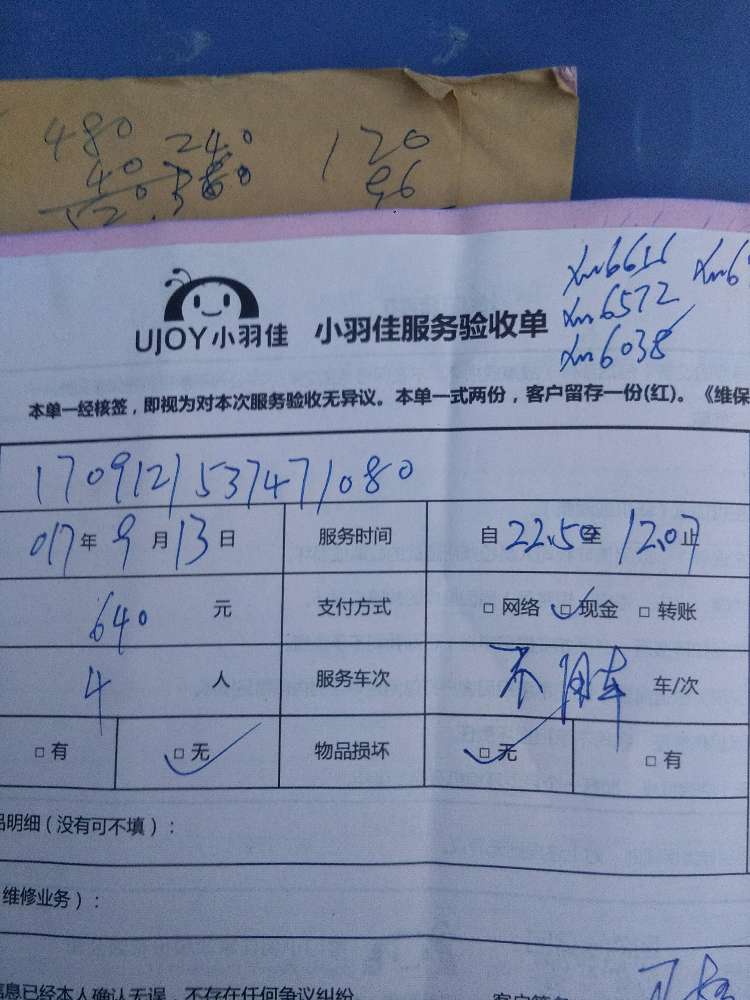 480 240 120
40 96
xm6616
xm6572
UJOY小羽佳 小羽佳服务验收单
xm6038
本单一经核签，即视为对本次服务验收无异议。本单一式两份，客户留存一份(红)。《维保
1709121537471080
017年9月13日 服务时间 自22.50至12.07止
640元 支付方式 □网络 □现金 □转账
4人 服务车次 不用车 车/次
□有 □无 物品损坏 □无 □有
品明细（没有可不填）：
维修业务）：
信息已经本人确认无误，不存在任何争议纠纷